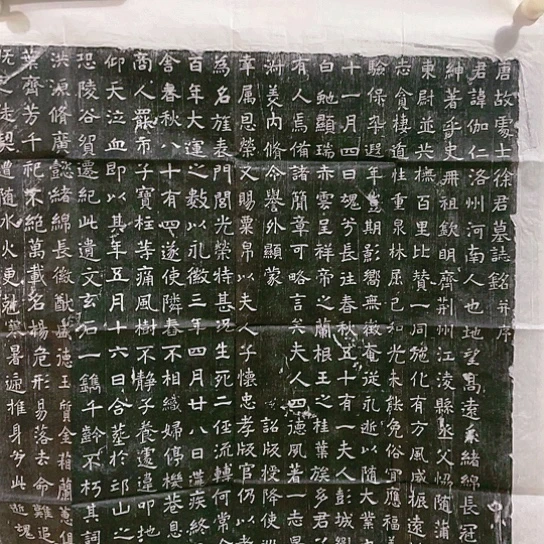 唐故處士徐君墓誌銘并序
君諱伽仁洛州河南人也地望高遠系緒綿長冠
紳著乎史冊祖欽明齊荆州江淩縣丞父㤝隨蒲
東尉並共撫百里比贊一同施化有方風威振遠
志貪棲道性重泉林屈己和光未能免俗冥應福善
驗保孕遐年豈期影嚮無徵奄從永逝以隨大業
十一月四日塊兮長往春秋五十有一夫人彭城劉
白虵顯瑞赤雲呈祥帝之蘭根王之桂葉族多君子
有人焉備諸簡章可略言矣夫人四德夙著一志
淋美內脩令譽外顯蒙 詔版授降使
章属恩榮又賜粟帛以夫人子懷忠孝版官仍以
為名旌表門閭光榮特甚況生死二俓流轉何常
百年大運之數以永徽三年四月廿八日遘疾終
舍春秋八十有四遂使隣舂不相織婦停機巷息
商人罷市子寶柱等痛風樹不靜子養遽違叩地
仰天泣血即以其年五月十六日合葬於邙山之
恐陵谷貿遷紀此遺文玄石一鐫千齡不朽其詞
洪源脩廣懿緒綿長徽猷盛德玉質金箱蘭蕙俱
葉齊芳千祀不絕萬載名揚危形易落去命難追
隨水火更 暑遞推身今此逝魂